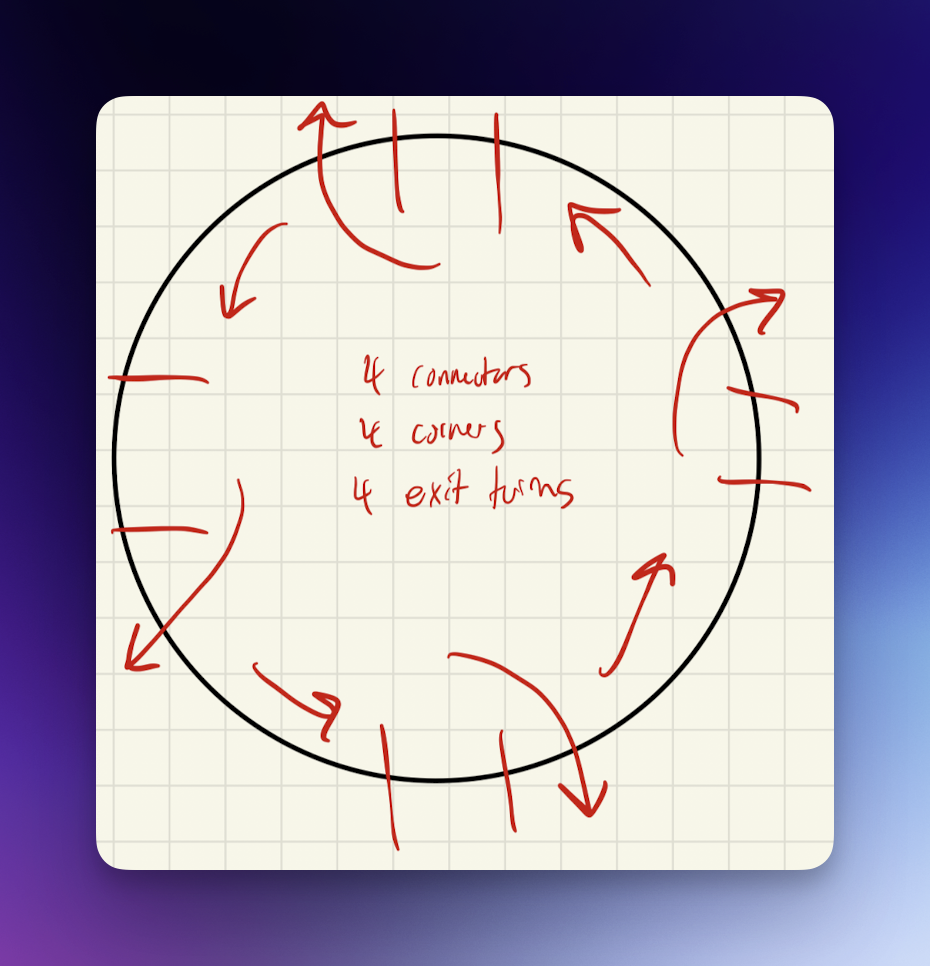 4 connectors
4 corners
4 exit turns